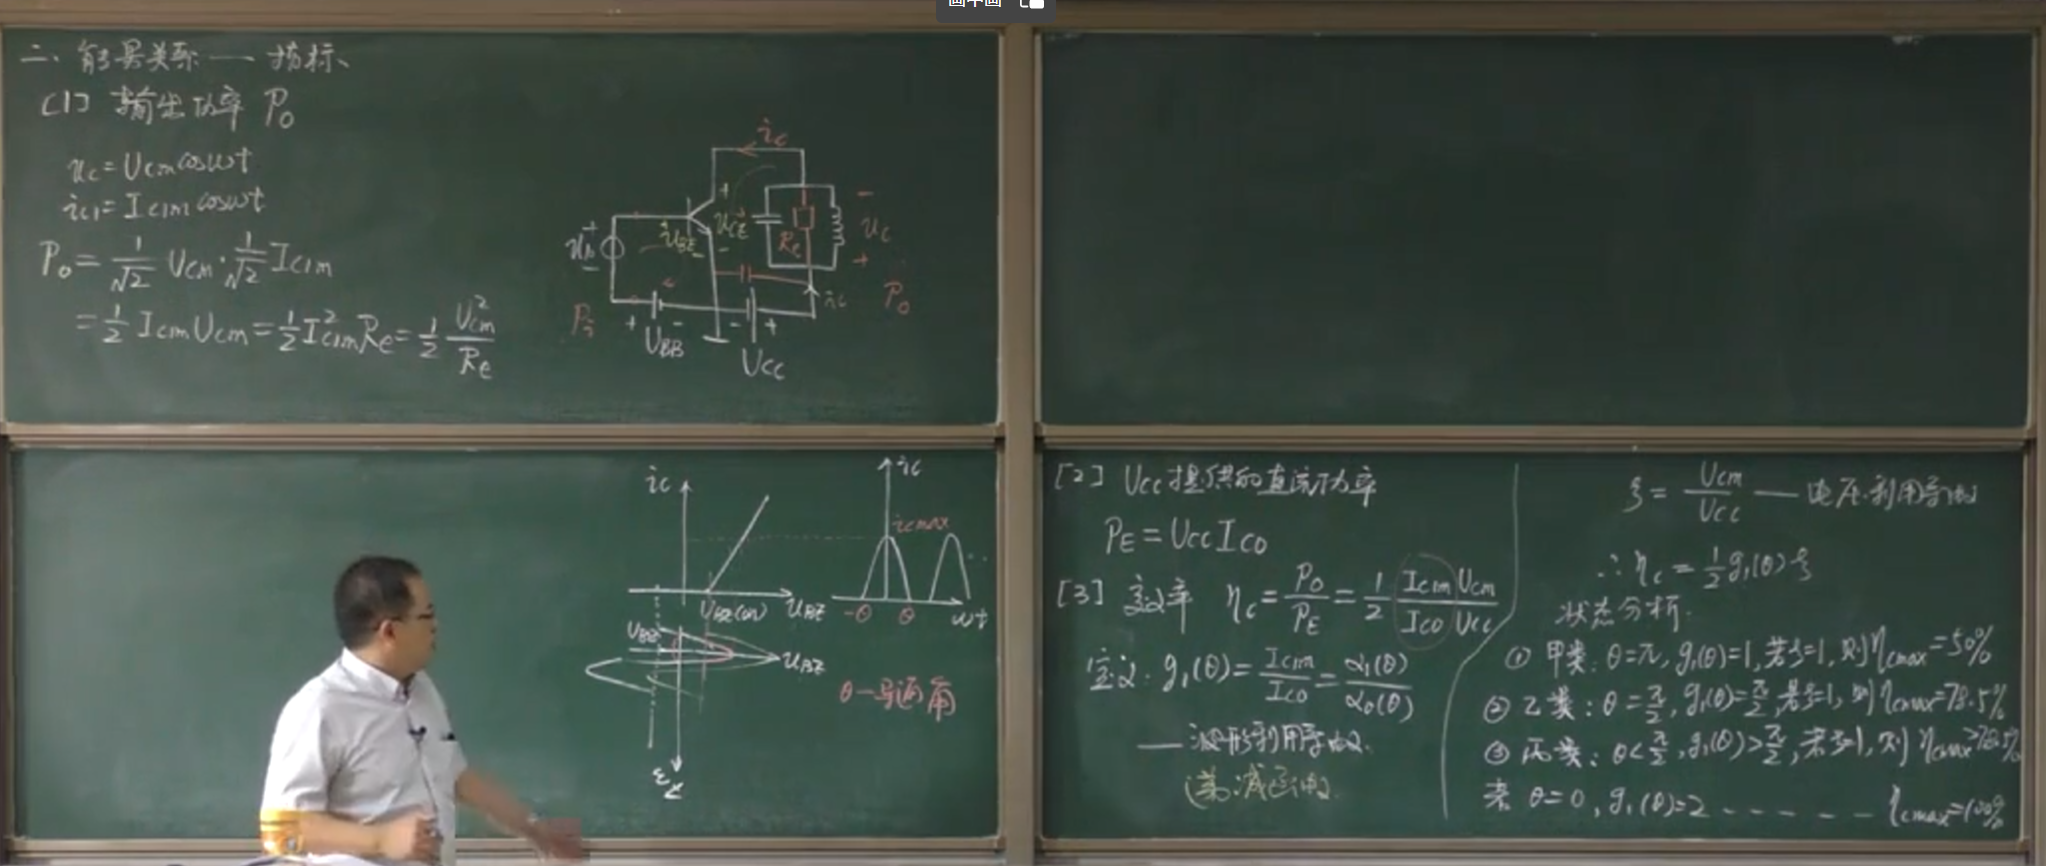 画中画
二、能量关系——指标、
[1] 输出功率 Po
uc=Ucm cosωt
ic1=Ic1m cosωt
Po=1/√2 Ucm·1/√2 Ic1m
=1/2 Icm Ucm=1/2 I²c1m Re=1/2 U²cm/Re
ic
+
+
−
ub
uBE
uCE
Re
uc
−
−
−
+
ic
Po
Pi
+ −
− +
UBB
UCC
ic
ic
icmax
...
UBE(on) uBE
-θ θ ωt
UBB
uBE
θ—导通角
[2] Ucc提供的直流功率
PE=Ucc Ico
[3] 效率 ηc=Po/PE=1/2 Ic1m Ucm/Ico Ucc
定义:g1(θ)=Ic1m/Ico=α1(θ)/α0(θ)
——波形利用系数.
(递减函数)
ξ=Ucm/Ucc——电压利用系数
∴ηc=1/2 g1(θ)ξ
状态分析.
① 甲类:θ=π, g1(θ)=1,若ξ=1,则ηcmax=50%
② 乙类:θ=π/2, g1(θ)=π/2,若ξ=1,则ηcmax=78.5%
③ 丙类:θ<π/2, g1(θ)>π/2,若ξ=1,则ηcmax>78.5%
θ=0, g1(θ)=2 - - - - - - ηcmax=100%